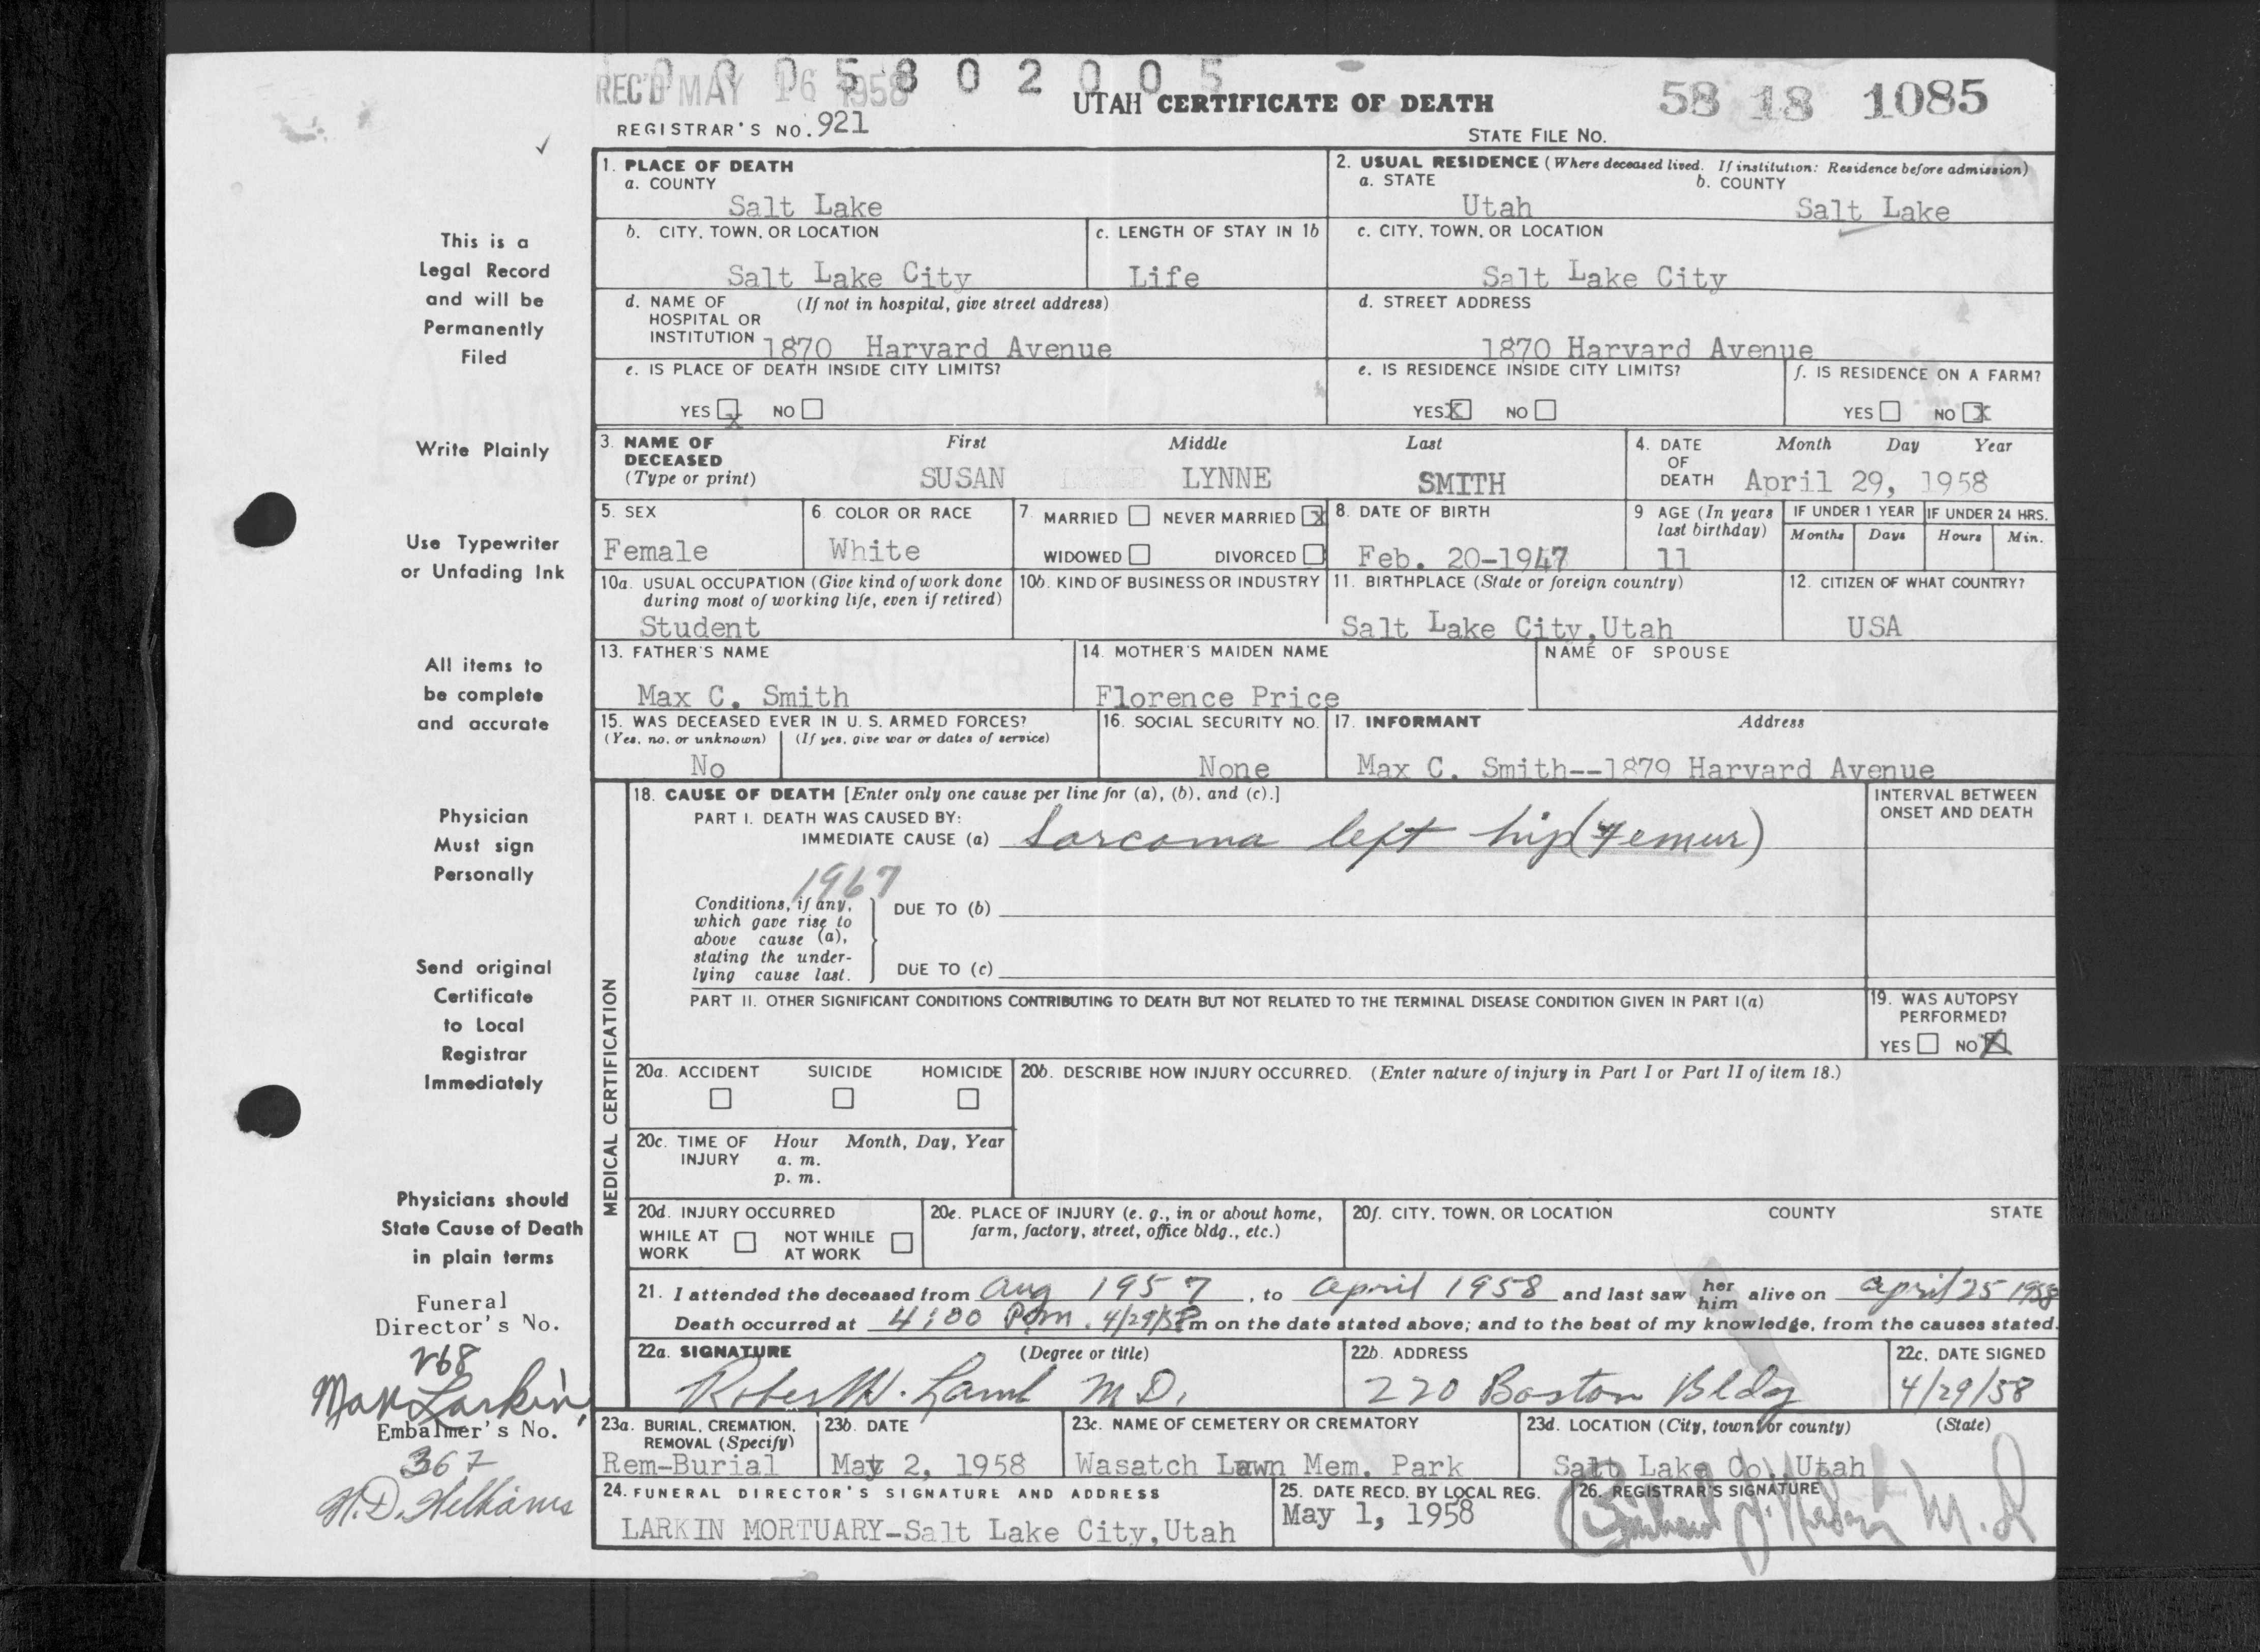 0 0 0 5 8 0 2 0 0 5
REC'D MAY 16 1958
UTAH CERTIFICATE OF DEATH
58 18 1085
REGISTRAR'S NO. 921
STATE FILE NO.
1. PLACE OF DEATH
a. COUNTY
Salt Lake
2. USUAL RESIDENCE (Where deceased lived. If institution: Residence before admission)
a. STATE
Utah
b. COUNTY
Salt Lake
b. CITY, TOWN, OR LOCATION
Salt Lake City
c. LENGTH OF STAY IN 1b
Life
c. CITY, TOWN, OR LOCATION
Salt Lake City
d. NAME OF (If not in hospital, give street address)
HOSPITAL OR
INSTITUTION 1870 Harvard Avenue
d. STREET ADDRESS
1870 Harvard Avenue
e. IS PLACE OF DEATH INSIDE CITY LIMITS?
YES x NO
e. IS RESIDENCE INSIDE CITY LIMITS?
YES X NO
f. IS RESIDENCE ON A FARM?
YES NO X
3. NAME OF
DECEASED
(Type or print)
First Middle Last
SUSAN LYNNE SMITH
4. DATE
OF
DEATH
Month Day Year
April 29, 1958
5. SEX
Female
6. COLOR OR RACE
White
7. MARRIED NEVER MARRIED X
WIDOWED DIVORCED
8. DATE OF BIRTH
Feb. 20-1947
9 AGE (In years
last birthday)
11
IF UNDER 1 YEAR
Months Days
IF UNDER 24 HRS.
Hours Min.
10a. USUAL OCCUPATION (Give kind of work done
during most of working life, even if retired)
Student
10b. KIND OF BUSINESS OR INDUSTRY
11. BIRTHPLACE (State or foreign country)
Salt Lake City, Utah
12. CITIZEN OF WHAT COUNTRY?
USA
13. FATHER'S NAME
Max C. Smith
14. MOTHER'S MAIDEN NAME
Florence Price
NAME OF SPOUSE
15. WAS DECEASED EVER IN U. S. ARMED FORCES?
(Yes, no, or unknown) (If yes, give war or dates of service)
No
16. SOCIAL SECURITY NO.
None
17. INFORMANT Address
Max C. Smith--1879 Harvard Avenue
MEDICAL CERTIFICATION
18. CAUSE OF DEATH [Enter only one cause per line for (a), (b), and (c).]
PART I. DEATH WAS CAUSED BY:
IMMEDIATE CAUSE (a) Sarcoma left hip (femur)
INTERVAL BETWEEN
ONSET AND DEATH
1967
Conditions, if any,
which gave rise to
above cause (a),
stating the under-
lying cause last.
DUE TO (b)
DUE TO (c)
PART II. OTHER SIGNIFICANT CONDITIONS CONTRIBUTING TO DEATH BUT NOT RELATED TO THE TERMINAL DISEASE CONDITION GIVEN IN PART I(a)
19. WAS AUTOPSY
PERFORMED?
YES NO X
20a. ACCIDENT SUICIDE HOMICIDE
20b. DESCRIBE HOW INJURY OCCURRED. (Enter nature of injury in Part I or Part II of item 18.)
20c. TIME OF Hour Month, Day, Year
INJURY a. m.
p. m.
20d. INJURY OCCURRED
WHILE AT
WORK
NOT WHILE
AT WORK
20e. PLACE OF INJURY (e. g., in or about home,
farm, factory, street, office bldg., etc.)
20f. CITY, TOWN, OR LOCATION COUNTY STATE
21. I attended the deceased from Aug 1957, to April 1958 and last saw her him alive on April 25 1958
Death occurred at 4:00 Pm. 4/29/58 m on the date stated above; and to the best of my knowledge, from the causes stated.
22a. SIGNATURE (Degree or title)
Robert H. Lamb M.D.
22b. ADDRESS
220 Boston Bldg
22c. DATE SIGNED
4/29/58
23a. BURIAL, CREMATION,
REMOVAL (Specify)
Rem-Burial
23b. DATE
May 2, 1958
23c. NAME OF CEMETERY OR CREMATORY
Wasatch Lawn Mem. Park
23d. LOCATION (City, town, or county) (State)
Salt Lake Co. Utah
24. FUNERAL DIRECTOR'S SIGNATURE AND ADDRESS
LARKIN MORTUARY-Salt Lake City, Utah
25. DATE RECD. BY LOCAL REG.
May 1, 1958
26. REGISTRAR'S SIGNATURE
This is a
Legal Record
and will be
Permanently
Filed
Write Plainly
Use Typewriter
or Unfading Ink
All items to
be complete
and accurate
Physician
Must sign
Personally
Send original
Certificate
to Local
Registrar
Immediately
Physicians should
State Cause of Death
in plain terms
Funeral
Director's No.
268
Max Larkin
Embalmer's No.
367